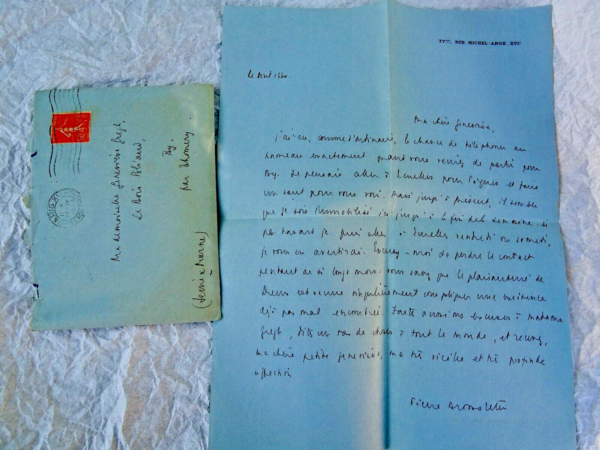 Mademoiselle Geneviève Gregh,
Le Bois Blaiaud,
By,
par Thomery
(Seine & Marne)
XVII, RUE MICHEL-ANGE XVI
Août 1930.
Ma chère Geneviève,
J'ai eu, comme d'ordinaire, la chance de téléphoner au
hameau exactement quand vous veniez de partir pour
By. Je pensais aller à pour et faire
un saut pour vous voir. Mais jusqu'à présent, il semble
que je sois immobilisé ici jusqu'à la fin de la semaine. Si
par hasard je puis aller à vendredi ou samedi,
je vous en avertirai. Excusez-moi de perdre le contact
pendant un si long mois. Vous savez que la de
Dreux est venue singulièrement compliquer une existence
déjà pas mal encombrée. Faites aussi mes excuses à Madame
Gregh, dites un tas de choses à tout le monde, et recevez,
ma chère petite Geneviève, ma très vieille et très profonde
affection
Pierre Brossolette